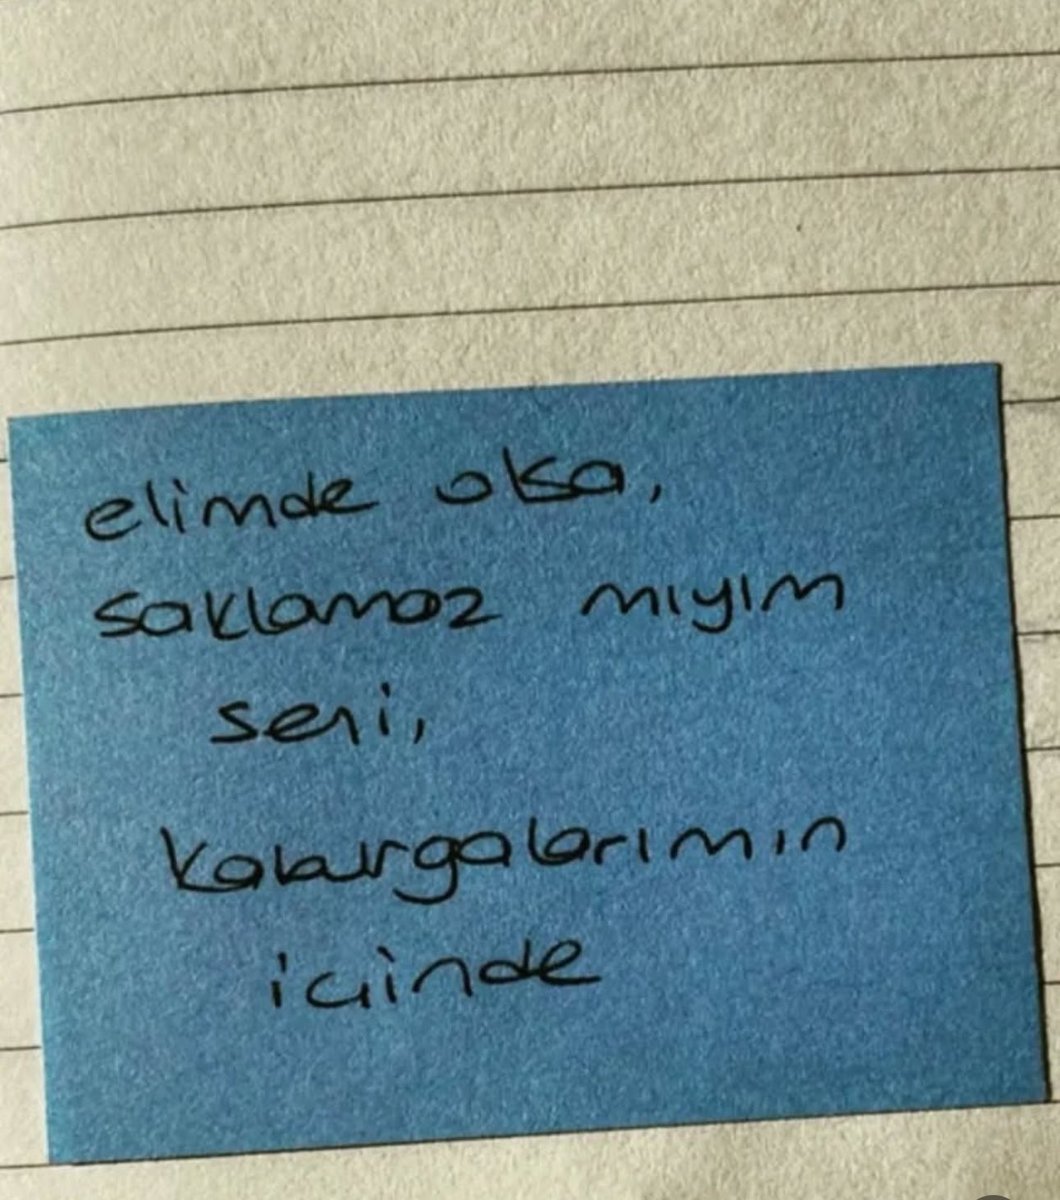 elimde olsa,
saklamaz mıyım
seni,
kaburgalarımın
içinde